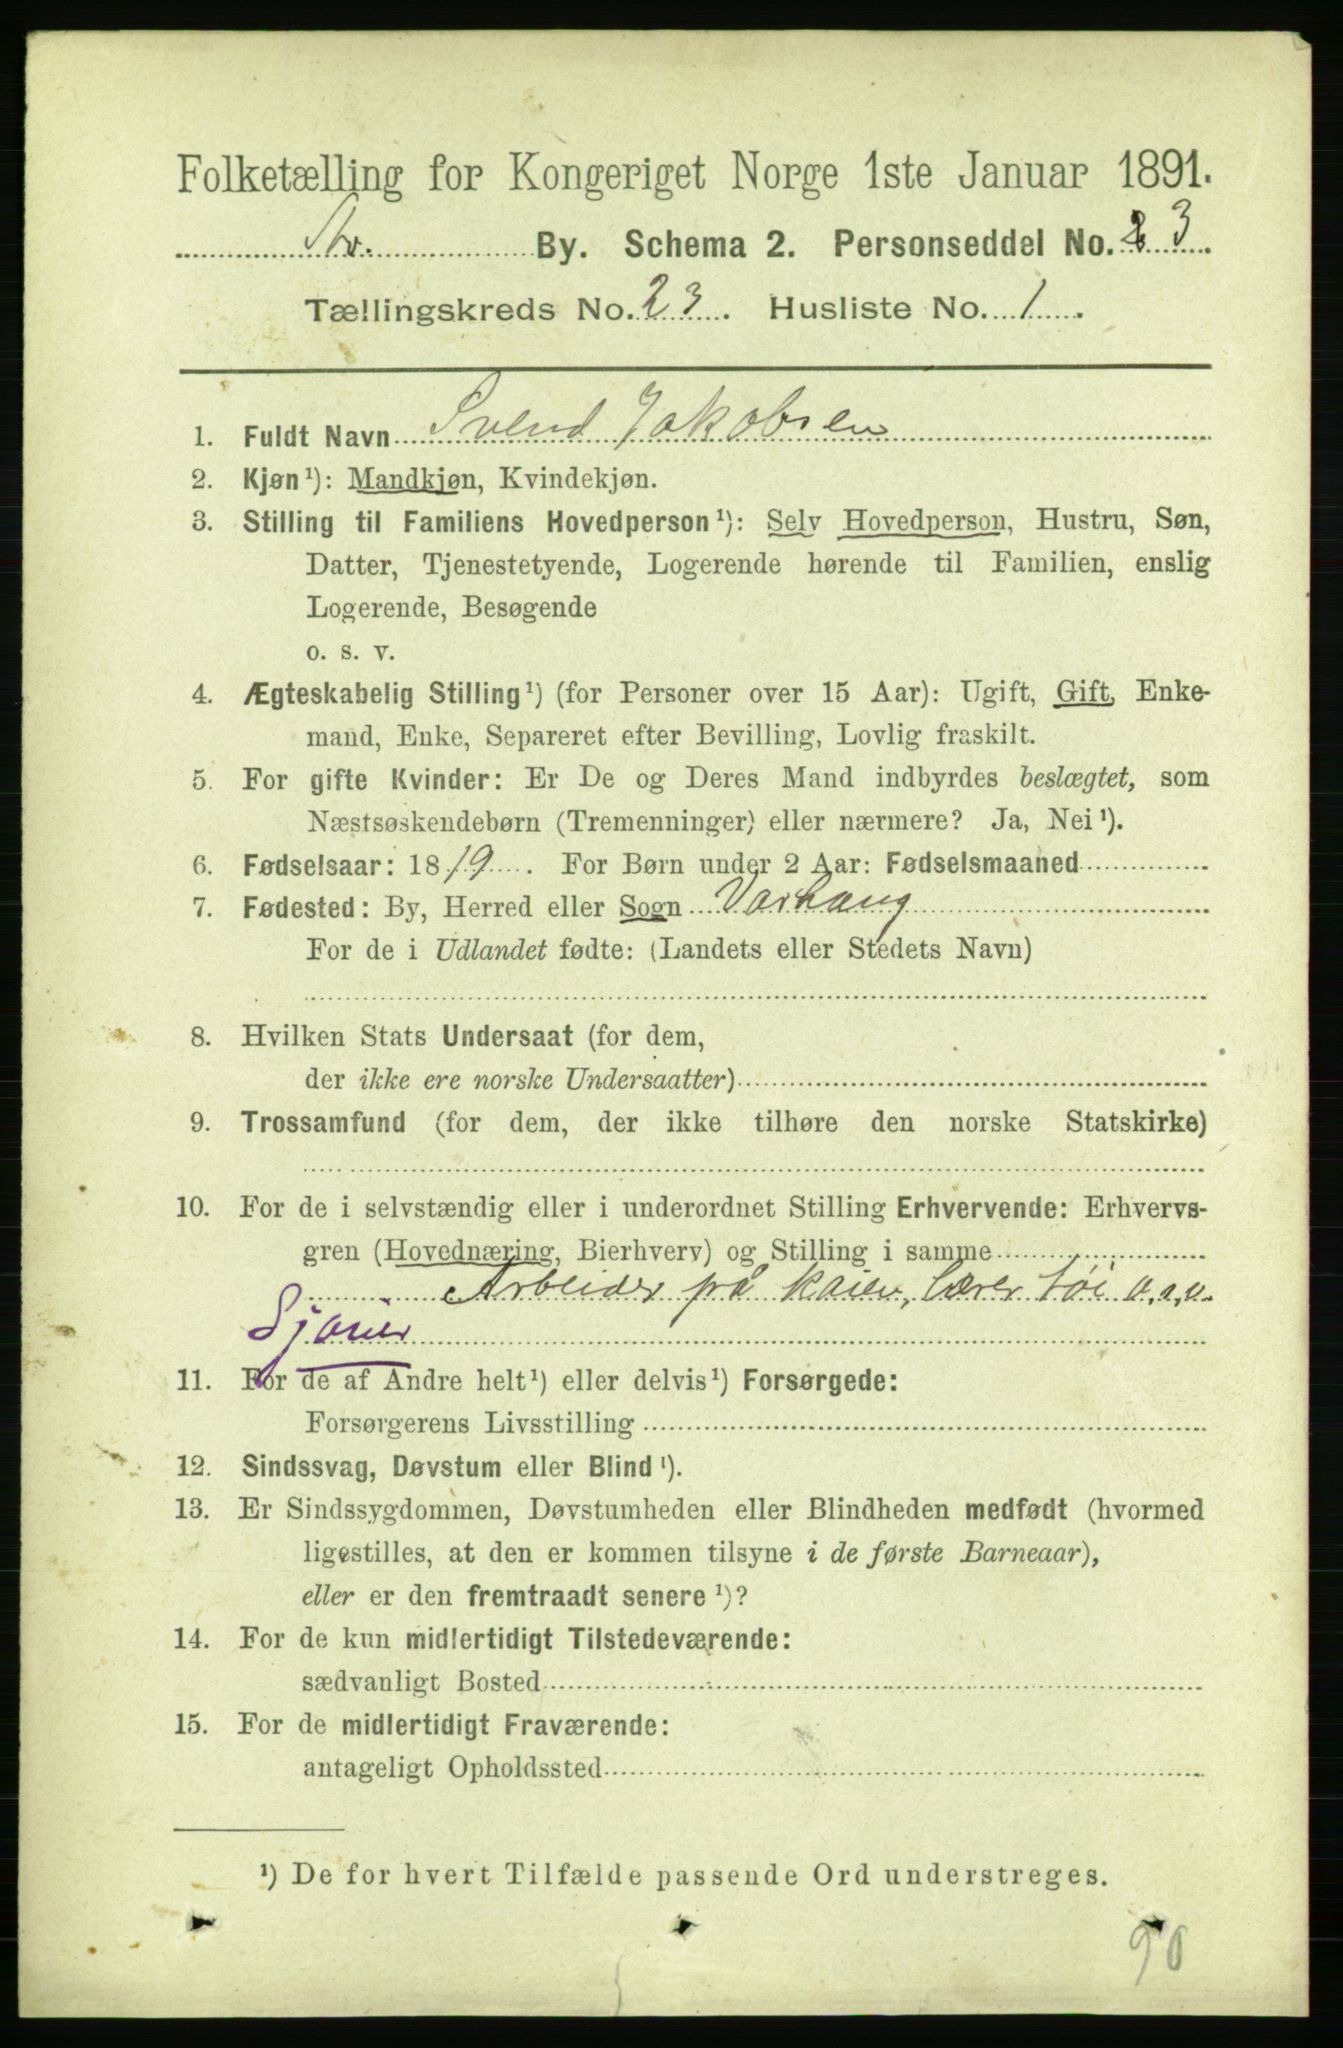 Folketælling for Kongeriget Norge 1ste Januar 1891.
Stv. By. Schema 2. Personseddel No. 3.
Tællingskreds No. 23. Husliste No. 1.
1. Fuldt Navn Svend Jakobsen
2. Kjøn¹): Mandkjøn, Kvindekjøn.
3. Stilling til Familiens Hovedperson¹): Selv Hovedperson, Hustru, Søn,
Datter, Tjenestetyende, Logerende hørende til Familien, enslig
Logerende, Besøgende
o. s. v.
4. Ægteskabelig Stilling¹) (for Personer over 15 Aar): Ugift, Gift, Enke-
mand, Enke, Separeret efter Bevilling, Lovlig fraskilt.
5. For gifte Kvinder: Er De og Deres Mand indbyrdes beslægtet, som
Næstsøskendebørn (Tremenninger) eller nærmere? Ja, Nei¹).
6. Fødselsaar: 1819. For Børn under 2 Aar: Fødselsmaaned
7. Fødested: By, Herred eller Sogn Varhaug
For de i Udlandet fødte: (Landets eller Stedets Navn)
8. Hvilken Stats Undersaat (for dem,
der ikke ere norske Undersaatter)
9. Trossamfund (for dem, der ikke tilhøre den norske Statskirke)
10. For de i selvstændig eller i underordnet Stilling Erhvervende: Erhvervs-
gren (Hovednæring, Bierhverv) og Stilling i samme
Arbeider på kaien, bærer tøi o.s.v.
Sjouer
11. For de af Andre helt¹) eller delvis¹) Forsørgede:
Forsørgerens Livsstilling
12. Sindssvag, Døvstum eller Blind¹).
13. Er Sindssygdommen, Døvstumheden eller Blindheden medfødt (hvormed
ligestilles, at den er kommen tilsyne i de første Barneaar),
eller er den fremtraadt senere¹)?
14. For de kun midlertidigt Tilstedeværende:
sædvanligt Bosted
15. For de midlertidigt Fraværende:
antageligt Opholdssted
¹) De for hvert Tilfælde passende Ord understreges.
90